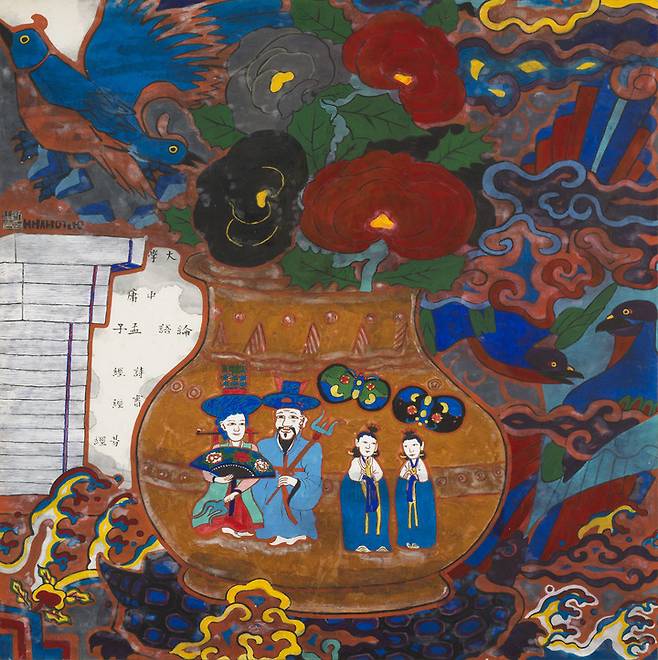 大學
中庸
論語 孟子
詩經
書經
易經